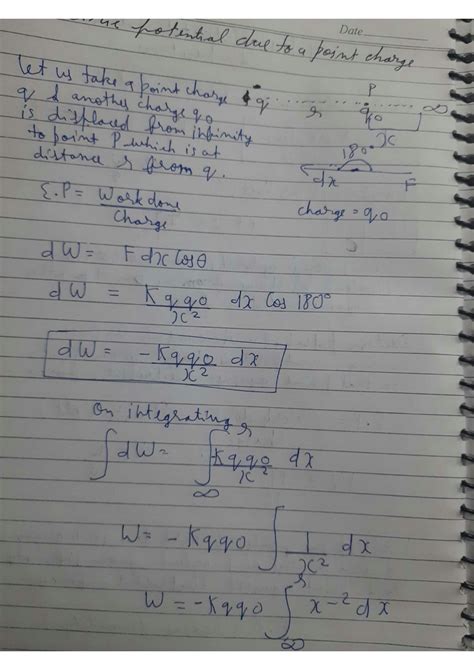 Date
potential due to a point charge
Let us take a point charge
q & another charge q0
is displaced from infinity
to point P which is at
distance r from q.
q P ∞
r q0
x
180°
dx F
charge = q0
E.P = Work done / Charge
dW = F dx Cosθ
dW = Kqq0/x² dx Cos 180°
dW = -Kqq0/x² dx
On integrating
∫dW = ∫ r ∞ Kqq0/x² dx
W = -Kqq0 ∫ 1/x² dx
W = -Kqq0 ∫ r ∞ x⁻² dx